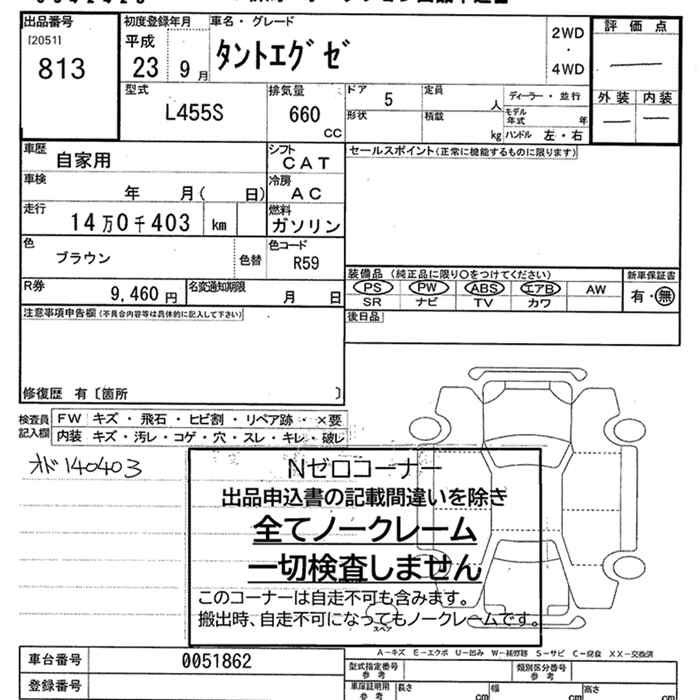 出品番号 初度登録年月 車名・グレード 評価点
[2051] 平成 2WD
813 23 9月 タントエグゼ ・
4WD
型式 排気量 ドア 5 定員 人 ディーラー・並行 外装 内装
L455S 660 形状 積載 モデル年式 年
CC kg ハンドル 左・右
車歴 自家用 シフト CAT セールスポイント(正常に機能するものに限ります)
車検 年 月( 日) 冷房 AC
走行 14万0千403 km 燃料 ガソリン
色 ブラウン 色替 色コード R59
装備品 (純正品に限り〇をつけてください) 新車保証書
R券 9,460円 名変通知期限 月 日 PS PW ABS エアB AW 有・無
SR ナビ TV カワ
注意事項申告欄(不具合内容等は具体的に記入して下さい) 後日品
修復歴 有〔箇所 〕
検査員記入欄 FW キズ・飛石・ヒビ割・リペア跡・×要
内装 キズ・汚レ・コゲ・穴・スレ・キレ・破レ
オド140403
Nゼロコーナー
出品申込書の記載間違いを除き
全てノークレーム
一切検査しません
このコーナーは自走不可も含みます。
搬出時、自走不可になってもノークレームです。
スペア
A-キズ E-エクボ U-凹み W-補修跡 S-サビ C-腐食 XX-交換済
車台番号 0051862 型式指定番号 参考 類別区分番号 参考
登録番号 車庫証明用 参考 長さ cm 幅 cm 高さ cm